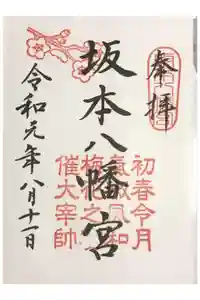 奉拝
坂本八幡宮
令和元年八月十一日
初春令月
氣淑風和
梅花之
催大宰帥